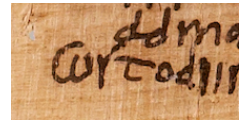 adma
custodiis